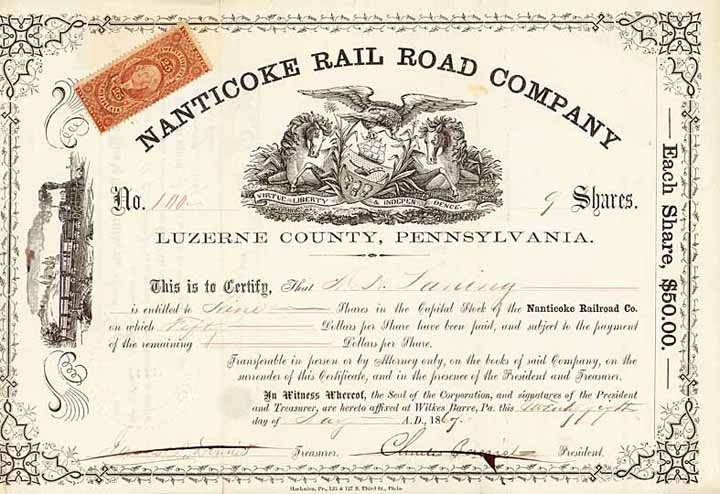 NANTICOKE RAIL ROAD COMPANY
VIRTUE LIBERTY & INDEPENDENCE.
No. 100 9 Shares.
LUZERNE COUNTY, PENNSYLVANIA.
Each Share, $50.00.
This is to Certify, That
is entitled to Nine Shares in the Capital Stock of the Nanticoke Railroad Co.
on which Fifty Dollars per Share have been paid, and subject to the payment
of the remaining Dollars per Share.
Transferable in person or by Attorney only, on the books of said Company, on the
surrender of this Certificate, and in the presence of the President and Treasurer.
In Witness Whereof, the Seal of the Corporation, and signatures of the President
and Treasurer, are hereto affixed at Wilkes Barre, Pa. this twenty fifth
day of A.D., 1867.
Treasurer. Charles President.